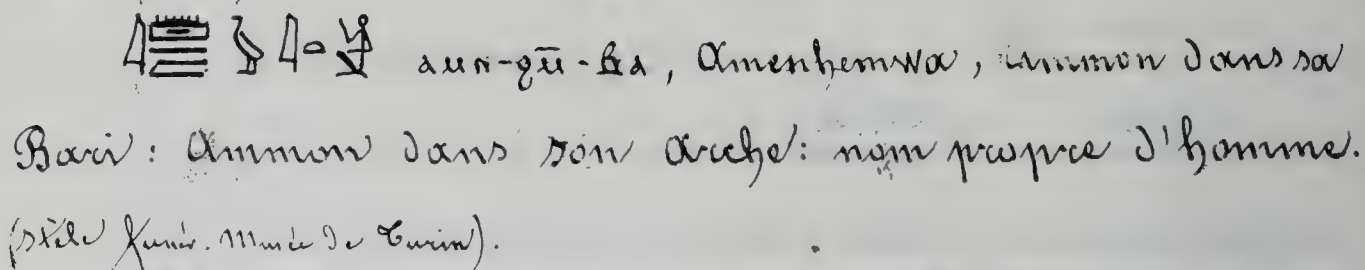 ⲁⲙⲛ-ϩⲙ̄-ⲃⲁ, Amenhemwa, ammon dans sa
Bari: Ammon dans son Arche: nom propre d'homme.
(stèle funér. Musée de Turin).